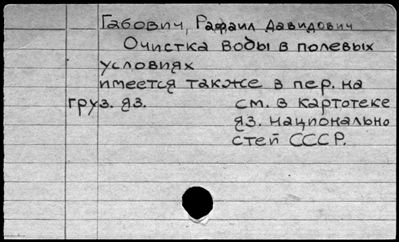 Габович, Рафаил Давидович
Очистка воды в полевых
условиях
имеется также в пер. на
груз. яз. см. в картотеке
яз. национально
стей СССР.